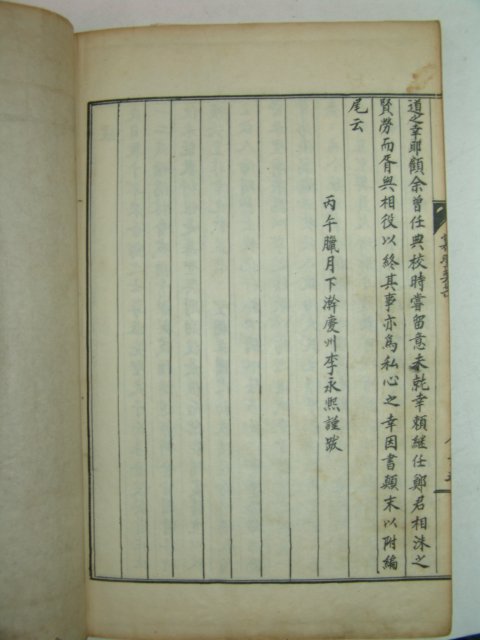 道之幸耶顧余曾任典校時嘗留意未乾幸賴繼任鄭君相洙之
賢勞而胥與相役以終其事亦爲私心之幸因書顚末以附編
尾云
丙午臘月下澣慶州李永熙謹跋